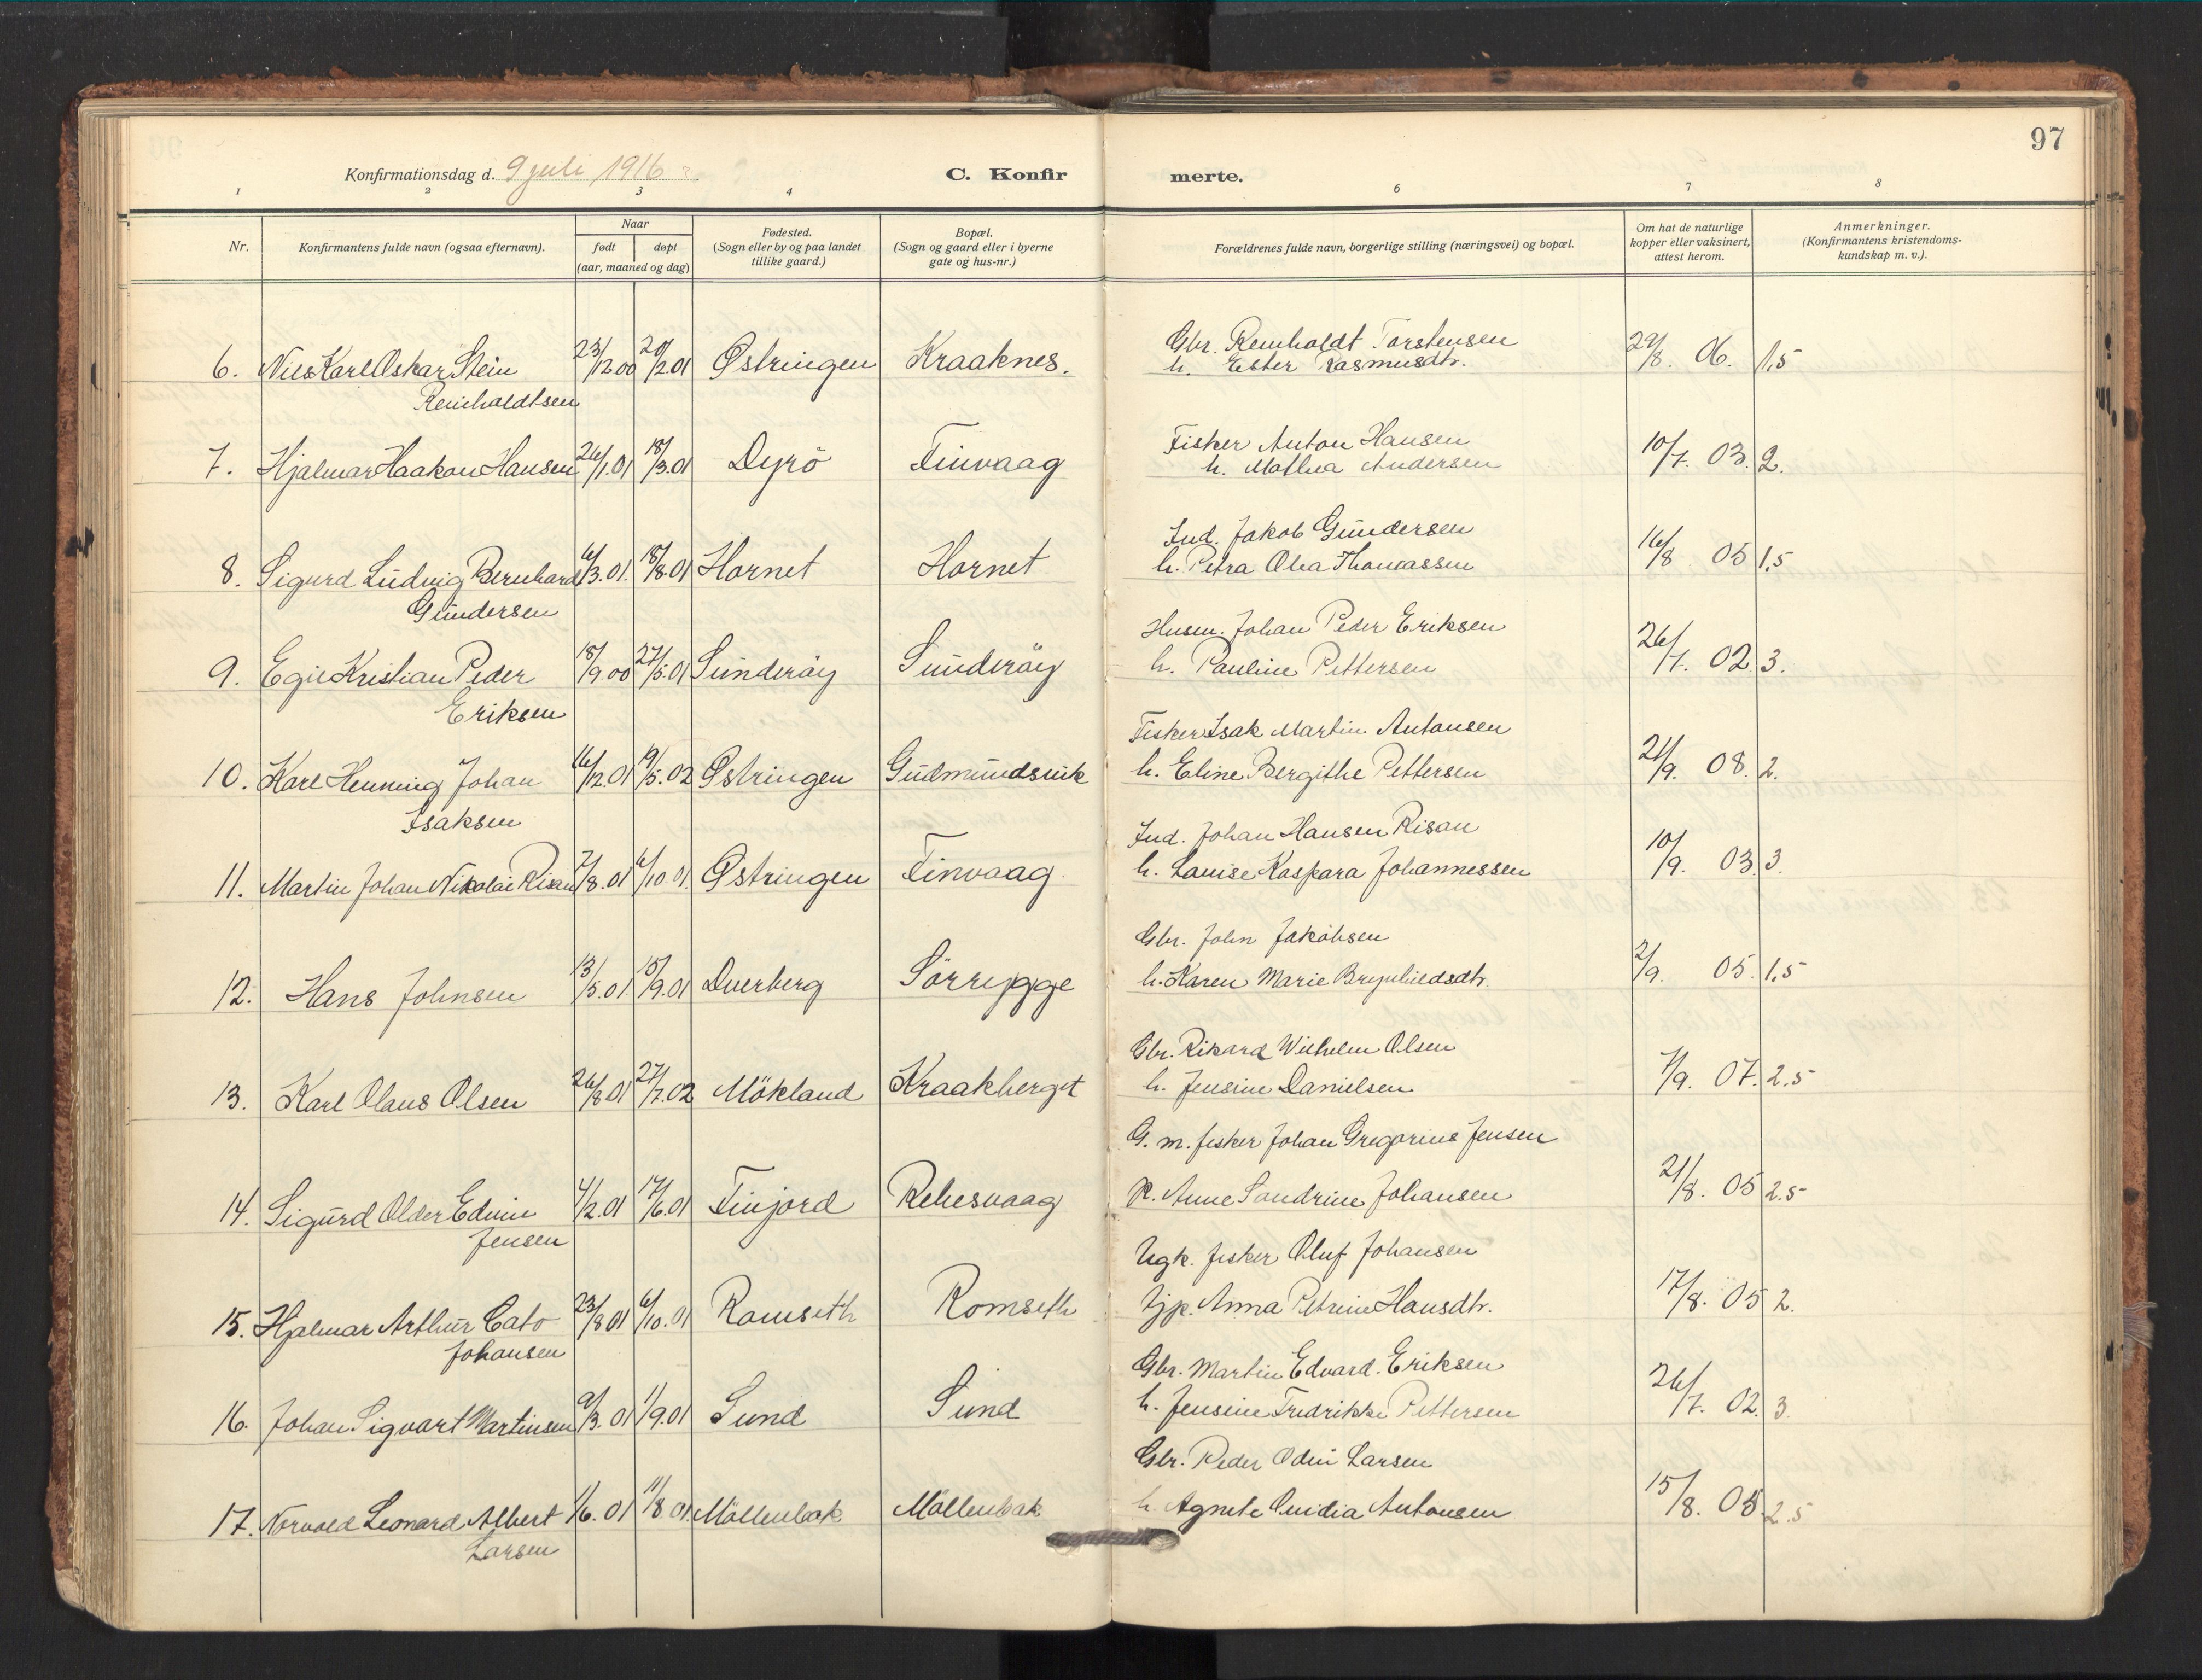 97
Konfirmationsdag d. 9 juli 1916
C. Konfirmerte.
1 2 3 4 6 7 8
Nr.
Konfirmantens fulde navn (ogsaa efternavn).
Naar
født døpt
(aar, maaned og dag)
Fødested.
(Sogn eller by og paa landet
tillike gaard.)
Bopæl.
(Sogn og gaard eller i byerne
gate og hus-nr.)
Forældrenes fulde navn, borgerlige stilling (næringsvei) og bopæl.
Om hat de naturlige
kopper eller vaksinert,
attest herom.
Anmerkninger.
(Konfirmantens kristendoms-
kundskap m. v.).
Gbr. Reinholdt Torstensen
6. Nils Karl Oskar Stein 23/12.00 20/2.01 Østringen Kraaknes. h. Ester Rasmusdtr. 29/8. 06. 1,5
Reinholdtsen
Fisker Anton Hansen
7. Hjalmar Haakon Hansen 26/1.01 18/3.01 Dyrö Finvaag h. Mathea Andersen 10/7. 03. 2.
Ind. Jakob Gundersen
8. Sigurd Ludvig Bernhard 6/3.01. 18/8.01 Hornet Hornet h. Petra Olea Thomassen 16/8 05 1,5
Gundersen
Husm. Johan Peder Eriksen
9. Egil Kristian Peder 18/9.00 27/5.01 Sunderöy Sunderöy h. Pauline Pettersen 26/7. 02. 3.
Eriksen
Fisker Isak Martin Antonsen
10. Karl Henning Johan 16/12.01 19/5.02 Østringen Gudmundsvik h. Eline Bergithe Pettersen 21/9. 08. 2.
Isaksen
Ind. Johan Hansen Risan
11. Martin Johan Nikolai Risan 7/8.01 6/10.01. Østringen Finvaag h. Louise Kaspara Johannessen 10/9. 03. 3.
Gbr. John Jakobsen
12. Hans Johnsen 13/5.01 15/9.01 Dverberg Sörrygge h. Karen Marie Brynhildsdtr 2/9. 05. 1,5
Gbr. Rikard Wilhelm Olsen
13. Karl Olaus Olsen 26/8.01 27/7.02 Mökland Kraakberget h. Jensine Danielsen 7/9. 07. 2.5
G. m. fisker Johan Gregorius Jensen
14. Sigurd Older Edvin 4/2.01 17/6.01 Finjord Rehesvaag P. Anne Sandrine Johansen 21/8. 05 2.5
Jensen
Ugk. fisker Oluf Johansen
15. Hjalmar Arthur Cato 23/8.01 6/10.01 Romseth Romseth Anna Petrine Hansdtr. 17/8. 05 2.
Johansen
Gbr. Martin Edvard Eriksen
16. Johan Sigvart Martinsen 9/3.01 1/9.01 Sund Sund h. Jensine Fredrikke Pettersen 26/7. 02. 3.
Gbr. Peder Odin Larsen
17. Norvald Leonard Albert 1/6.01 11/8.01. Möllenbak Möllenbak h. Agnete Ovidia Antonsen 15/8. 05 2.5
Larsen